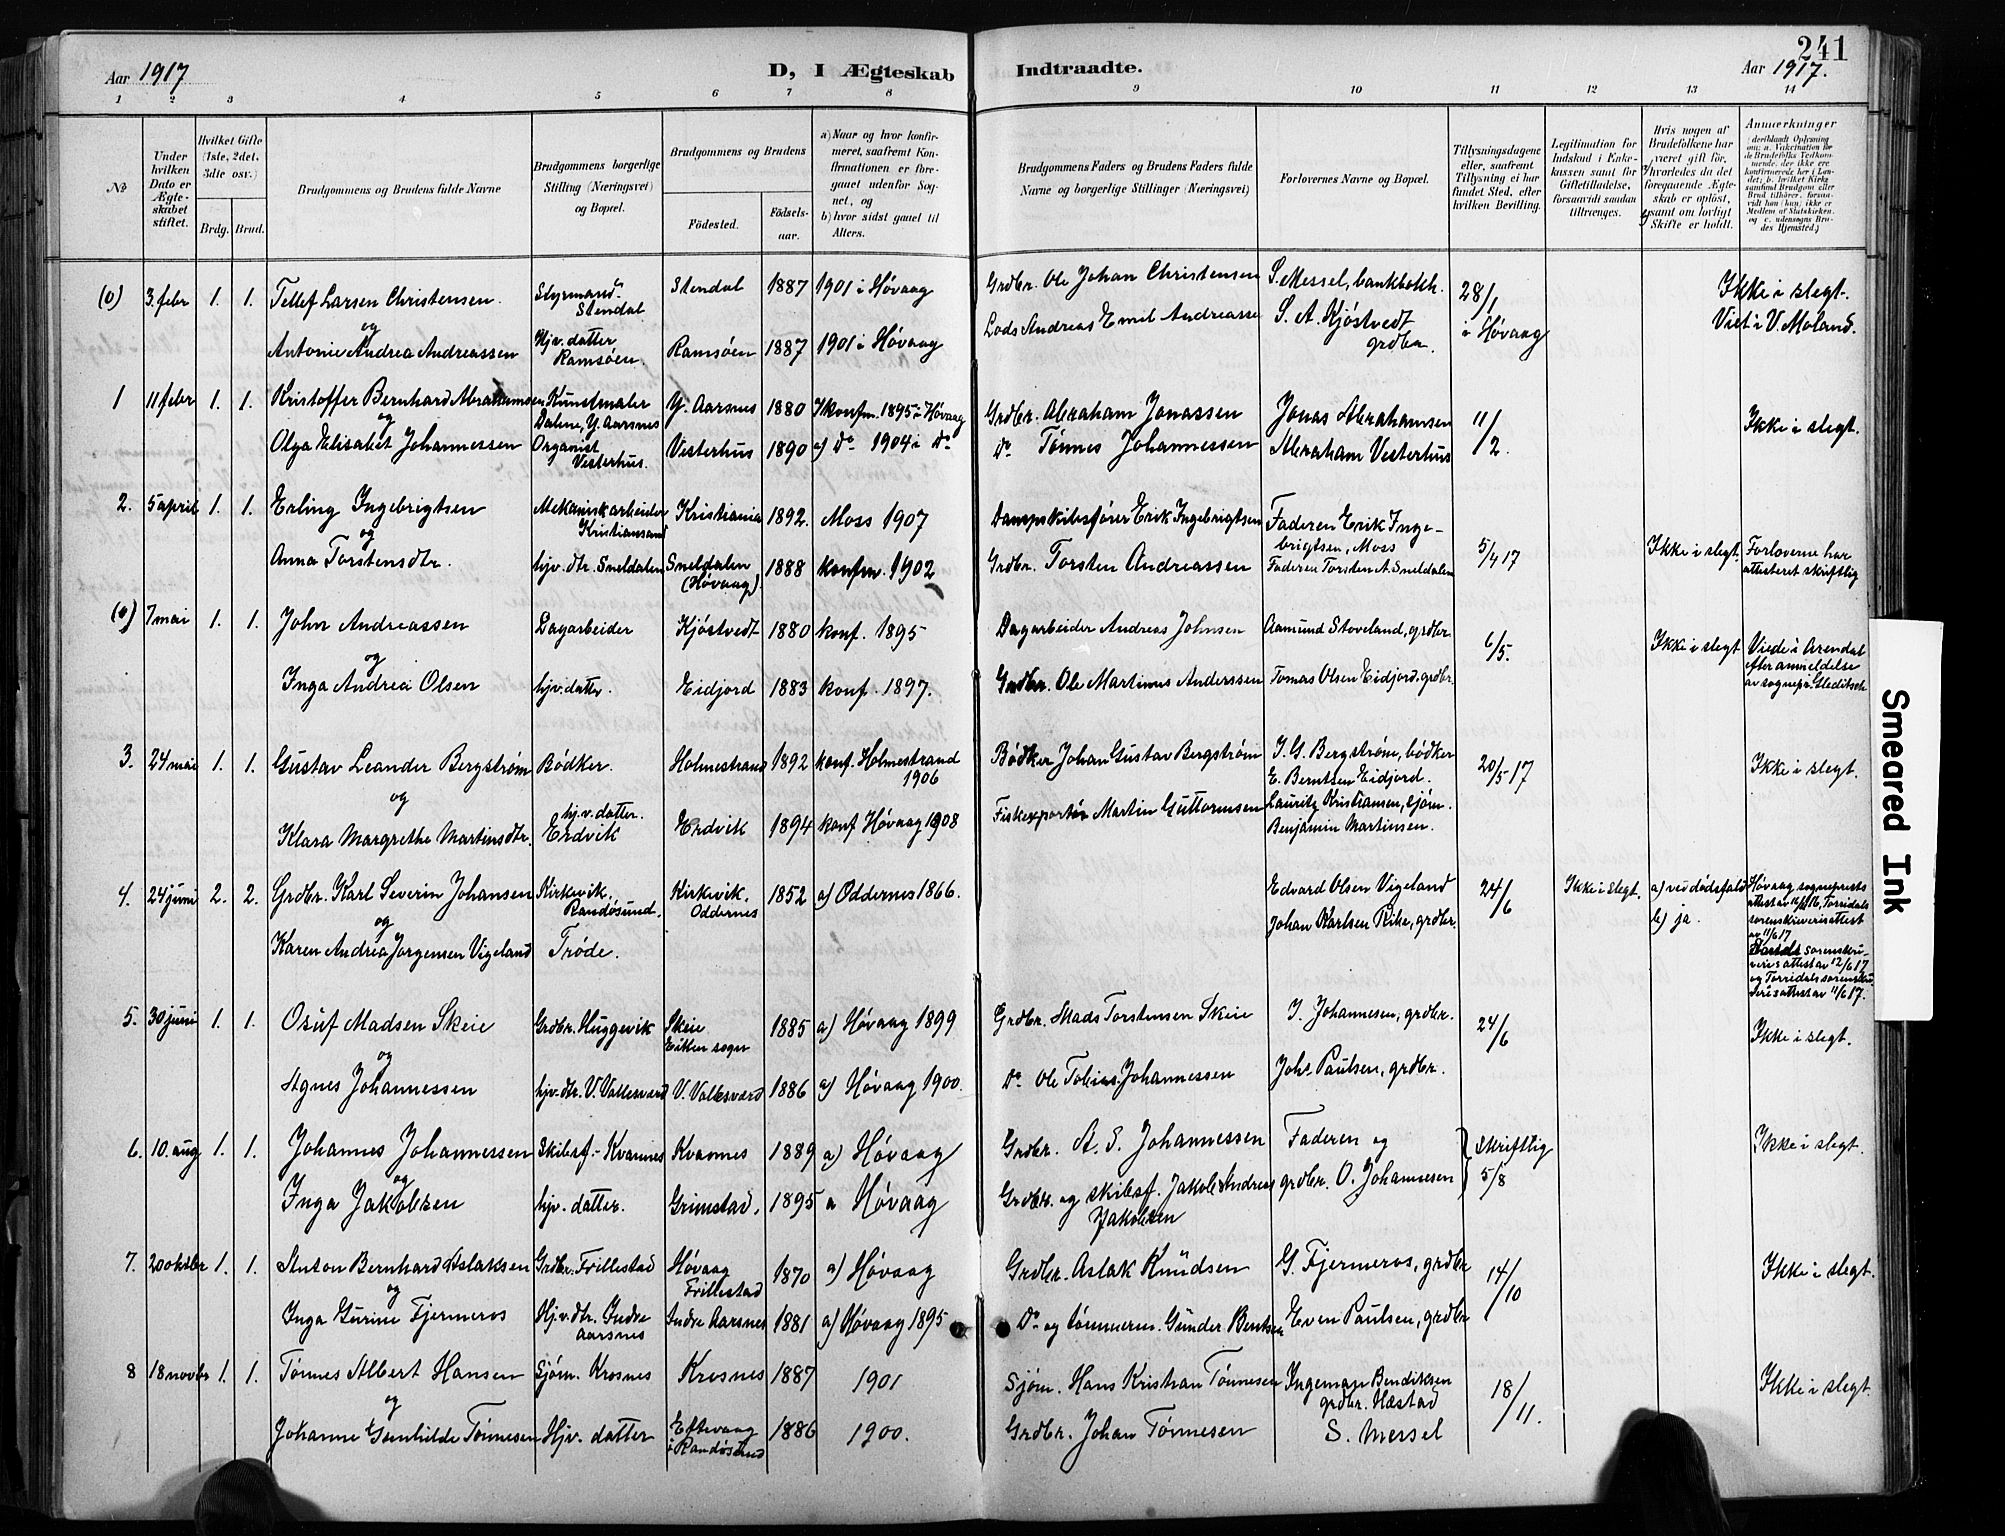 241
Aar 1917
D, I Ægteskab
Indtraadte.
Aar 1917.
1 2 3 4 5 6 7 8 9 10 11 12 13 14
No
Under hvilken Dato er Ægteskabet stiftet.
Hvilket Gifte (1ste, 2det, 3die osv.)
Brdg. Brud.
Brudgommens og Brudens fulde Navne
Brudgommens borgerlige Stilling (Næringsvei) og Bopæl.
Brudgommens og Brudens
Födested.
Födselsaar.
a) Naar og hvor konfirmeret, saafremt Konfirmationen er foregaaet udenfor Sognet, og
b) hvor sidst gaaet til Alters.
Brudgommens Faders og Brudens Faders fulde Navne og borgerlige Stillinger (Næringsvei)
Forlovernes Navne og Bopæl.
Tillysningsdagene eller, saafremt Tillysning ei har fundet Sted, efter hvilken Bevilling.
Legitimation for Indskud i Enkekassen samt for Giftetilladelse, forsaavidt saadan tiltrænges.
Hvis nogen af Brudefolkene har været gift før, a) hvorledes da det foregaaende Ægteskab er opløst, b) samt om lovligt Skifte er holdt.
Anmærkninger
(0) 3. febr 1. 1. Tellef Larsen Christensen Styrmand Stendal Stendal 1887 1901 i Høvaag Grdbr. Ole Johan Christensen S. Messel, bankbokh. 28/1 i Høvaag Ikke i slegt. Viet i V. Moland.
og
Antonie Andrea Andreassen Hjv. datter Ramsøen Ramsøen 1887 1901 i Høvaag Lods Andreas Emil Andreasse S. A. Kjöstvedt grdbr.
1 11 febr 1. 1. Kristoffer Bernhard Abrahamsen Kunstmaler Dalene, Y. Aarsnes Y. Aarsnes 1880 Konfm. 1895 i Høvaag Grdbr. Abraham Jonassen Jonas Abrahamsen 11/2 Ikke i slegt.
og
Olga Elisabet Johannessen Organist Vesterhus. Vesterhus 1890 a) Do 1904 i Do Do Tønnes Johannessen Abraham Vesterhus
2. 5 april 1. 1. Erling Ingebrigtsen Mekanikarbeider Kristiansand Kristiania 1892. Moss 1907 Dampskibsfører Erik Ingebrigtsen Faderen Erik Ingebrigtsen, Moss 5/4 17 Ikke i slegt. Forloverne har attesteret skriftlig
og
Anna Torstensdtr. hjv. dtr. Sneldalen Sneldalen (Høvaag) 1888 konfm. 1902 Grdbr. Torsten Andreassen Faderen Torsten A. Sneldalen
(0) 7 mai 1. 1. John Andreassen Dagarbeider Kjöstvedt 1880 konf. 1895 Dagarbeider Andreas Johnsen Aamund Stoveland, grdbr. 6/5. Ikke i slegt Viede i Arendal efter anmeldelse av sognepr. Gleditsch
og
Inga Andrea Olsen hjv. datter. Eidjord 1883 konf. 1897. Grdbr. Ole Martinus Anderssen Tomas Olsen Eidjord. grdbr.
3. 24 mai 1. 1. Gustav Leander Bergstrøm Bødker. Holmestrand 1892 konf. Holmestrand 1906 Bødker Johan Gustav Bergstrøm J. G. Bergstrøm, bødker E. Berntsen Eidjord. 20/5 17 Ikke i slegt.
og
Klara Margrethe Martinsdtr. hjv. datter. Erdvik Erdvik 1894 konf Høvaag 1908 Fiskexportør Martin Guttormsen Lauritz Kristiansen, sjøm. Benjamin Martinsen.
4. 24 juni 2. 2. Grdbr. Karl Severin Johansen Kirkevik, Randøsund. Kirkevik. Oddernes 1852 a) Oddernes 1866. Edvard Olsen Vigeland 24/6 Ikke i slegt. a) ved dødsfald b) ja. Høvaag sogneprests attest av Torridals sorenskriverisattest av 11/6 17 sorenskriveris attest av 12/6 17 og Torridals sorenskriveris attest av 11/6 17.
og
Karen Andrea Jørgensen Vigeland Trøde. Johan Karlsen Rike, grdbr.
5. 30 juni 1. 1. Osuf Madsen Skeie Grdbr. Huggevik Skeie Eiken sogn 1885 a) Høvaag 1899 Grdbr. Mads Torstensen Skeie I. Johannesen, grdbr. 24/6 Ikke i slegt.
og
Agnes Johannessen hjv. dtr. V. Vallesværd V. Vallesværd 1886 a) Høvaag 1900. Do Ole Tobias Johannessen Johs Paulsen, grdbr.
6. 10. aug 1. 1. Johannes Johannessen Skibsf. - Kvannes Kvannes 1889 a) Høvaag Grdbr. A. S. Johannessen Faderen og Skriftlig 5/8 Ikke i slegt.
og
Inga Jakobsen hjv. datter. Grimstad. 1895 a Høvaag Grdbr. og skibsf. Jakob Andreas Jakobsen grdbr. O. Johannesen
7. 20 oktbr 1. 1. Anton Bernhard Aslaksen Grdbr. Frillestad Høvaag Frillestad 1870 a) Høvaag Grdbr. Aslak Knudsen G. Fjermeros, grdbr 14/10 Ikke i slegt.
og
Inga Gurine Fjermeros Hjv. dtr. Indre Aarsnes Indre Aarsnes 1881 a) Høvaag 1895 Do og tømmerm. Gunder Bentsen Even Paulsen, grdbr
8 18 novbr 1. 1. Tønnes Albert Hansen Sjøm. Krosnes Krosnes 1887 1901 Sjøm. Hans Kristian Tønnesen Ingeman Bendiksen grdbr. Hæstad 18/11. Ikke i slegt.
og
Johanne Gunhilde Tønnesen Hjv. datter Eftevaag i Randøsund 1886 1900. Grdbr. Johan Tønnesen S. Messel
Smeared Ink